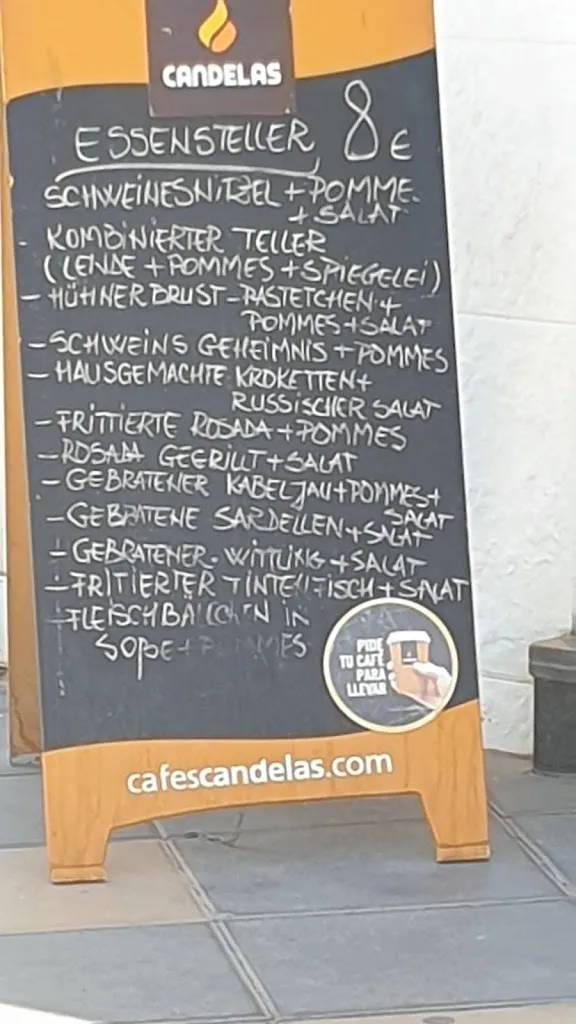 CANDELAS
ESSENSTELLER 8 €
SCHWEINESNITZEL + POMME.
+ SALAT
- KOMBINIERTER TELLER
(LENDE + POMMES + SPIEGELEI)
- HÜHNERBRUST - PASTETCHEN +
POMMES + SALAT
- SCHWEINS GEHEIMNIS + POMMES
- HAUSGEMACHTE KROKETTEN +
RUSSISCHER SALAT
- FRITTIERTE ROSADA + POMMES
- ROSADA GEGRILLT + SALAT
- GEBRATENER KABELJAU + POMMES +
SALAT
- GEBRATENE SARDELLEN + SALAT
- GEBRATENER WITTLING + SALAT
- FRITIERTER TINTENFISCH + SALAT
- FLEISCHBÄLLCHEN IN
SOßE + POMMES
PIDE
TU CAFÉ
PARA
LLEVAR
cafescandelas.com